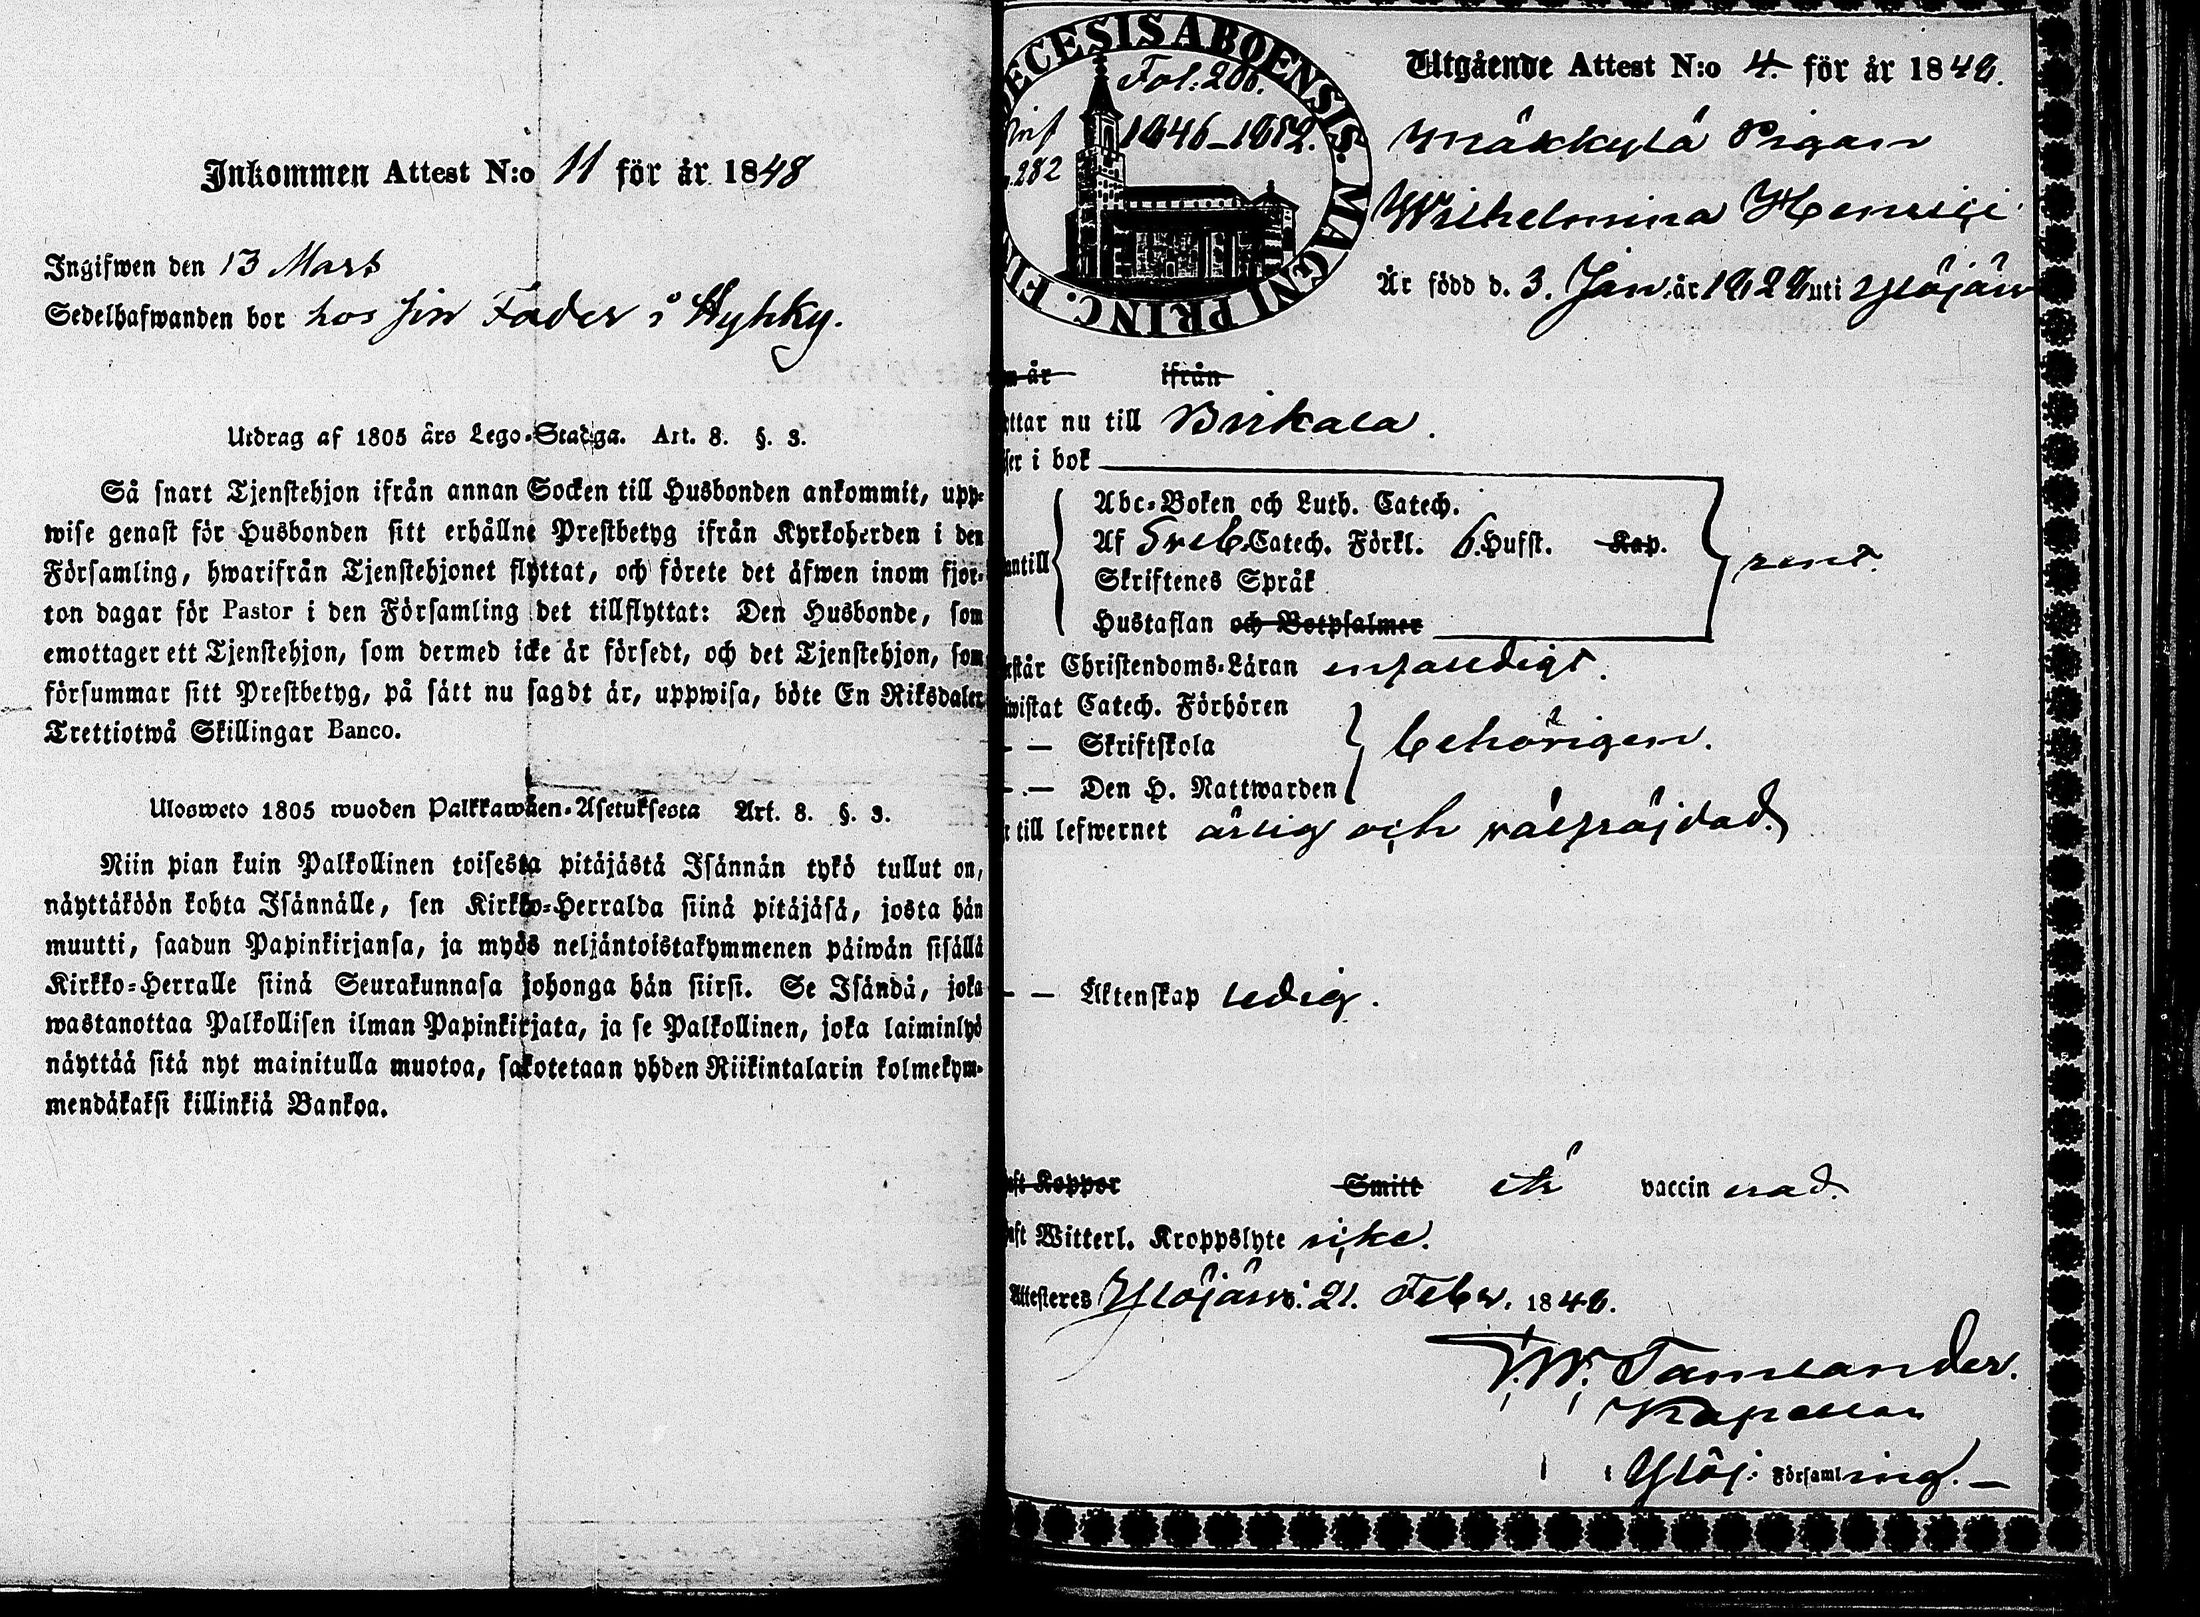 Inkommen Attest N:o 11 för år 1848
Ingifwen den 13 Mars
Sedelhafwanden bor hos sin Fader i Hyhky.
Utdrag af 1805 års Lego-Stadga. Art. 8. §. 3.
Så snart Tjenstehjon ifrån annan Socken till Husbonden ankommit, upp-
wise genast för Husbonden sitt erhållne Prestbetyg ifrån Kyrkoherden i den
Församling, hwarifrån Tjenstehjonet flyttat, och förete det äfwen inom fjor-
ton dagar för Pastor i den Församling det tillflyttat: Den Husbonde, som
emottager ett Tjenstehjon, som dermed icke är försedt, och det Tjenstehjon, som
försummar sitt Prestbetyg, på sätt nu sagdt är, uppwisa, böte En Riksdaler
Trettiotwå Skillingar Banco.
Ulosweto 1805 wuoden Palkkawäen-Asetuksesta Art. 8. §. 3.
Niin pian kuin Palkollinen toisesta pitäjästä Isännän tykö tullut on,
näyttäköön kohta Isännälle, sen Kirkko-Herralda siinä pitäjäsä, josta hän
muutti, saadun Papinkirjansa, ja myös neljäntoistakymmenen päiwän sisällä
Kirkko-Herralle siinä Seurakunnasa johonga hän siirsi. Se Isändä, joka
wastanottaa Palkollisen ilman Papinkirjata, ja se Palkollinen, joka laiminlyö
näyttää sitä nyt mainitulla muotoa, sakotetaan yhden Riikintalarin kolmekym-
mendäkaksi killinkiä Bankoa.
ECESIS ABOENSIS. MAGNI PRINC. FIN
Fol: 200.
1846–1852.
282
Utgående Attest N:o 4. för år 1848.
Mäkkylä Pigan
Wilhelmina Henrici
Är född d. 3. Jan. år 1828 uti Ylöjärvi
m år ifrån
yttar nu till Birkala.
ser i bok
antill
Abc-Boken och Luth. Catech.
Af Sveb. Catech. Förkl. 6. Hufst. Kap.
Skriftenes Språk
Hustaflan och Botpsalmer
rent.
rstår Christendoms-Läran enfaldigt.
iwistat Catech. Förhören
— — Skriftskola
— — Den H. Nattwarden
behörigen.
n till lefwernet ärlig och välfräjdad.
— — Äktenskap ledig.
aft Koppor Smitt är vaccinerad.
aft Witterl. Kroppslyte icke.
Attesteres Ylöjärvi. 21. Febr. 1848.
F. W. Tamlander.
Kapellan
Ylöj: Församling. —